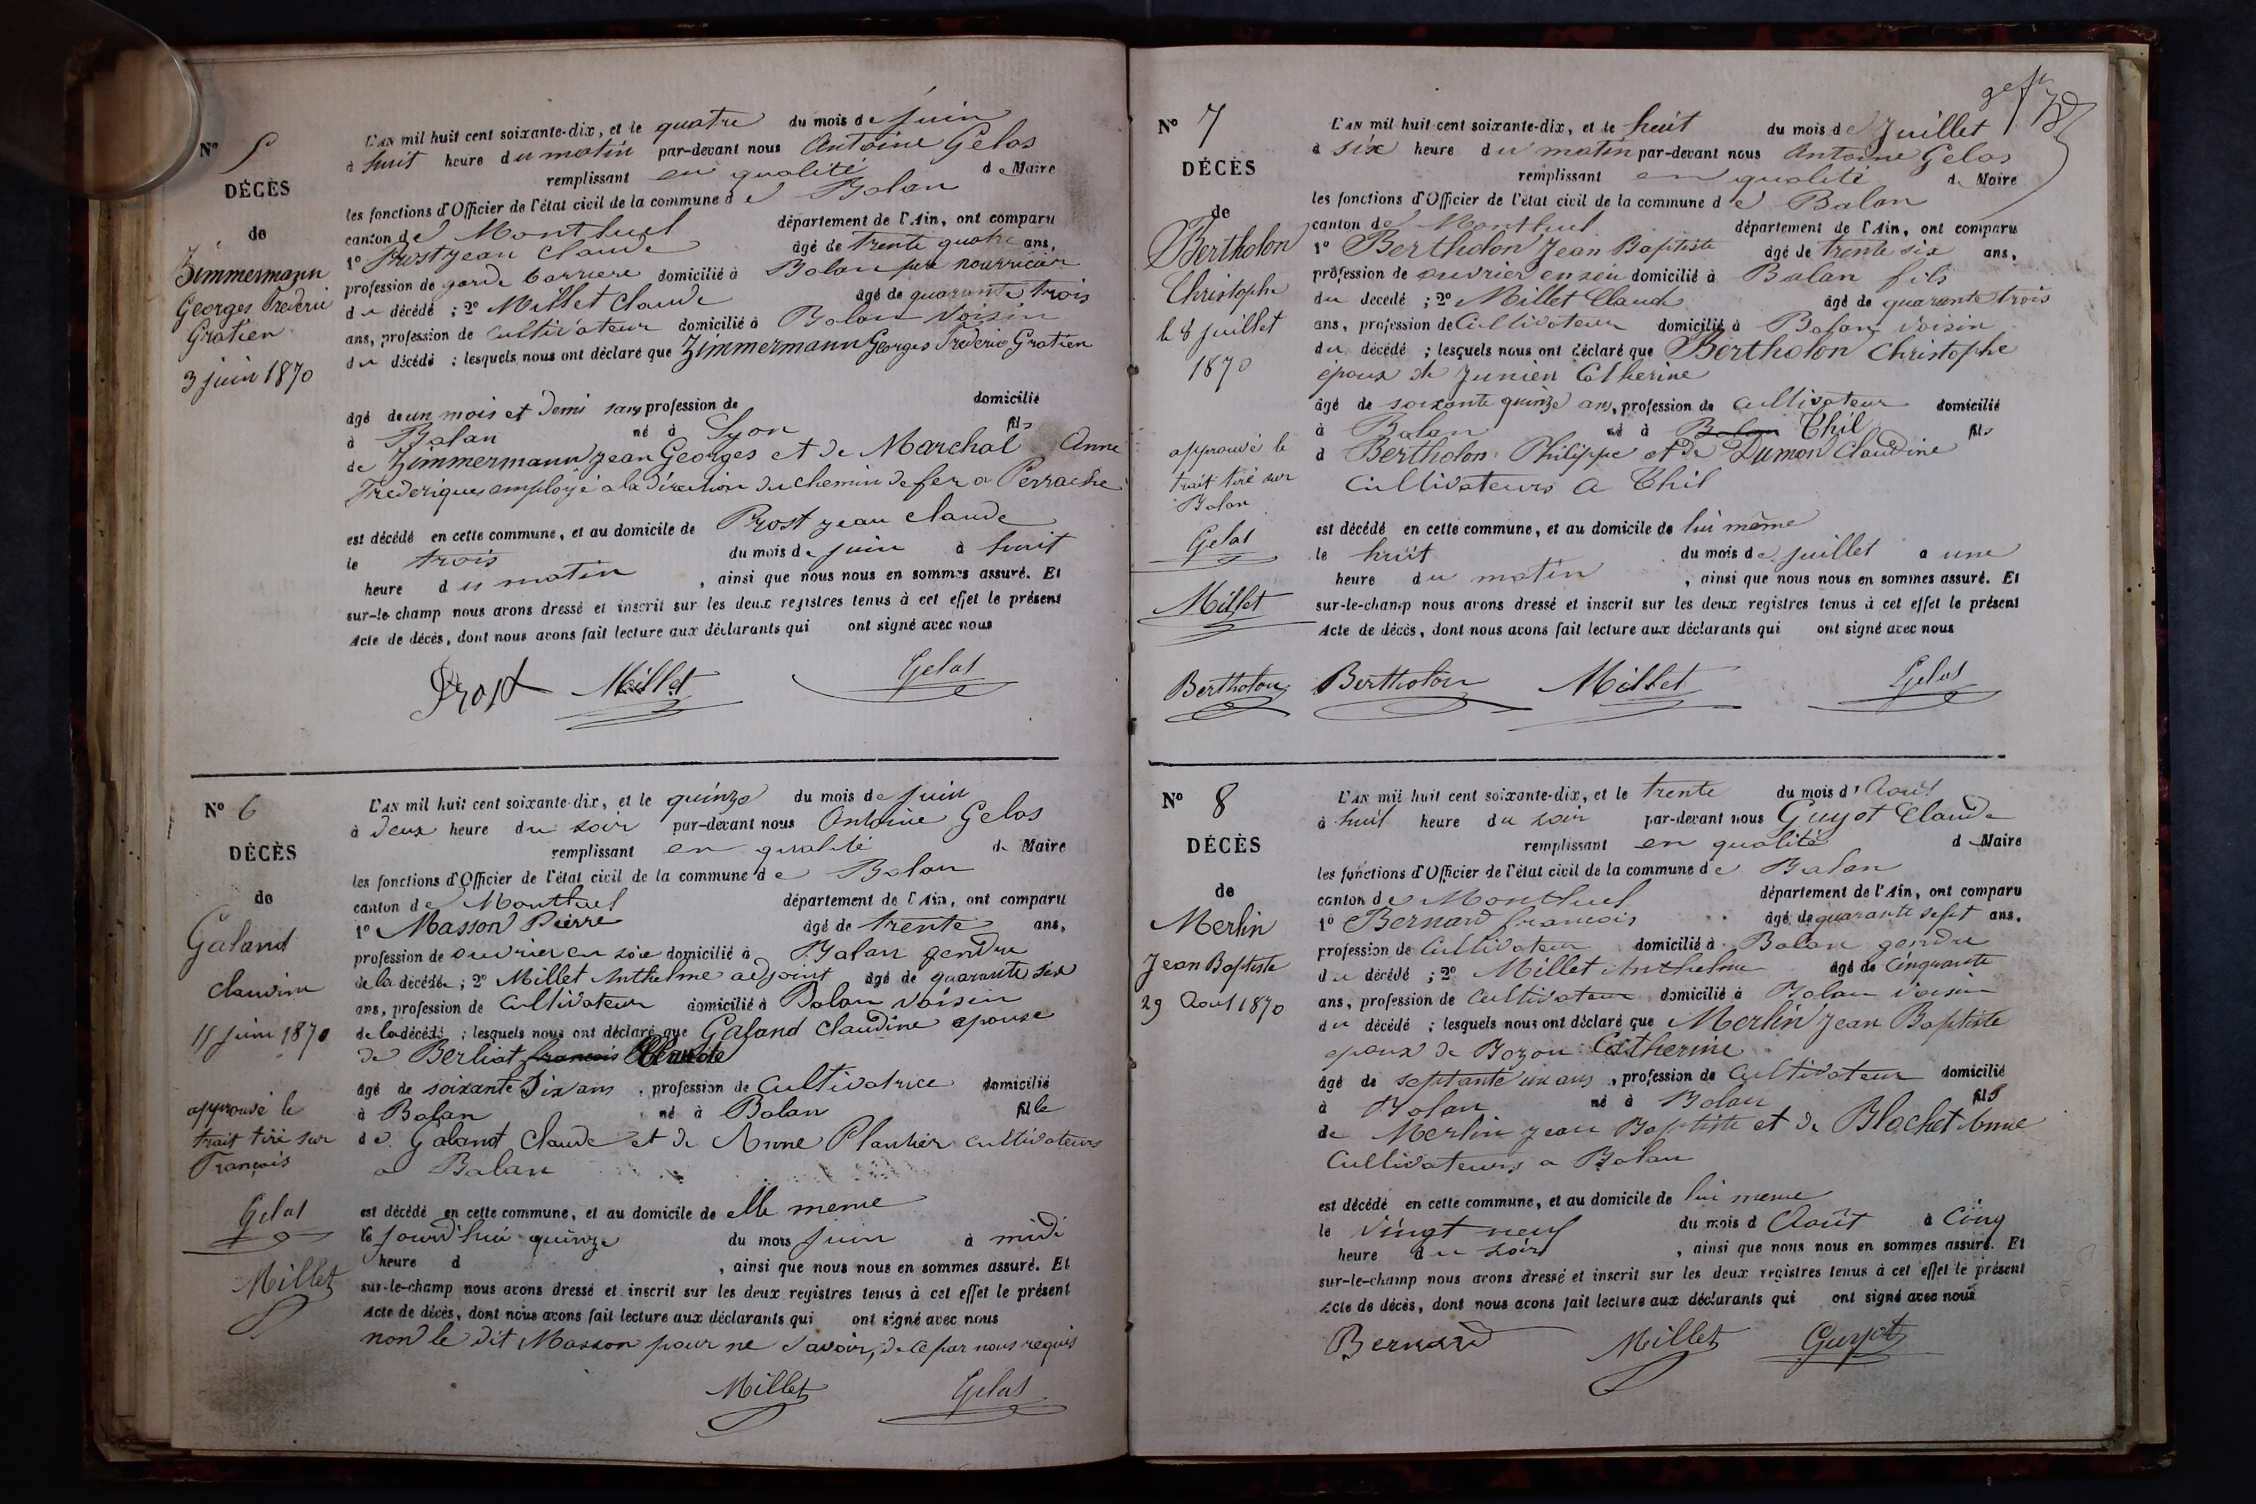 N° 5
DÉCÈS
de
Zimmermann
Georges Frederic
Gratien
3 juin 1870
L'AN mil huit cent soixante-dix, et le quatre du mois de juin
à huit heure du matin par-devant nous Antoine Gelas
remplissant en qualité de Maire
les fonctions d'Officier de l'état civil de la commune de Balan
canton de Montluel département de l'Ain, ont comparu
1° Prost jean claude âgé de trente quatre ans,
profession de garde barriere domicilié à Balan pere nourricier
du décédé ; 2° Millet Claude âgé de quarante trois
ans, profession de cultivateur domicilié à Balan voisin
du décédé ; lesquels nous ont déclaré que Zimmermann Georges Frederic Gratien
âgé de un mois et demi sans profession de domicilié
à Balan né à Lyon fils
de Zimmermann jean Georges et de Marchal Anne
Frederique employé a la direction du chemin de fer a Perrache
est décédé en cette commune, et au domicile de Prost jean claude
le trois du mois de juin à huit
heure du matin , ainsi que nous nous en sommes assuré. Et
sur-le-champ nous avons dressé et inscrit sur les deux registres tenus à cet effet le présent
Acte de décès, dont nous avons fait lecture aux déclarants qui ont signé avec nous
Prost Millet Gelas
N° 6
DÉCÈS
de
Galand
claudine
15 juin 1870
approuvé le
trait tiré sur
François
Gelas
Millet
L'AN mil huit cent soixante-dix, et le quinze du mois de juin
à deux heure du soir par-devant nous Antoine Gelas
remplissant en qualité de Maire
les fonctions d'Officier de l'état civil de la commune de Balan
canton de Montluel département de l'Ain, ont comparu
1° Masson Pierre âgé de trente ans,
profession de ouvrier en soie domicilié à Balan gendre
de la décédée ; 2° Millet Anthelme adjoint âgé de quarante six
ans, profession de cultivateur domicilié à Balan voisin
de la décédé ; lesquels nous ont déclaré que Galand claudine epouse
de Berliat francois Claude
âgé de soixante dix ans , profession de cultivatrice domicilié
à Balan né à Balan fille
de Galand Claude et de Anne Plantier cultivateurs
a Balan
est décédé en cette commune, et au domicile de elle meme
le jourd'hui quinze du mois juin à midi
heure d , ainsi que nous nous en sommes assuré. Et
sur-le-champ nous avons dressé et inscrit sur les deux registres tenus à cet effet le présent
Acte de décès, dont nous avons fait lecture aux déclarants qui ont signé avec nous
non le dit Masson pour ne savoir, de ce par nous requis
Millet Gelas
N° 7
DÉCÈS
de
Bertholon
Christophe
le 8 juillet
1870
approuvé le
trait tiré sur
Balan
Gelas
Millet
Bertholon
L'AN mil huit cent soixante-dix, et le huit du mois de Juillet
à six heure du matin par-devant nous Antoine Gelas
remplissant en qualité de Maire
les fonctions d'Officier de l'état civil de la commune de Balan
canton de Montluel département de l'Ain, ont comparu
1° Bertholon Jean Baptiste âgé de trente six ans,
profession de ouvrier en soie domicilié à Balan fils
du decédé ; 2° Millet Claude âgé de quarante trois
ans, profession de Cultivateur domicilié à Balan voisin
du décédé ; lesquels nous ont déclaré que Bertholon Christophe
epoux de Junien Catherine
âgé de soixante quinze ans, profession de cultivateur domicilié
à Balan né à Balan Thil fils
d Bertholon Philippe et de Dumon Claudine
Cultivateurs a Thil
est décédé en cette commune, et au domicile de lui même
le huit du mois de juillet a une
heure du matin , ainsi que nous nous en sommes assuré. Et
sur-le-champ nous avons dressé et inscrit sur les deux registres tenus à cet effet le présent
Acte de décès, dont nous avons fait lecture aux déclarants qui ont signé avec nous
Bertholon Millet Gelas
N° 8
DÉCÈS
de
Merlin
Jean Baptiste
29 Aout 1870
L'AN mil huit cent soixante-dix, et le trente du mois d'Aout
à huit heure du soir par-devant nous Guyot Claude
remplissant en qualité d Maire
les fonctions d'Officier de l'état civil de la commune de Balan
canton de Montluel département de l'Ain, ont comparu
1° Bernard francois âgé de quarante sept ans,
profession de Cultivateur domicilié à Balan gendre
du décédé ; 2° Millet Anthelme âgé de cinquante
ans, profession de cultivateur domicilié à Balan voisin
du décédé ; lesquels nous ont déclaré que Merlin jean Baptiste
epoux de Bozon Catherine
âgé de septante un ans , profession de Cultivateur domicilié
à Balan né à Balan fils
de Merlin jean Baptiste et de Blachet Anne
Cultivateurs a Balan
est décédé en cette commune, et au domicile de lui meme
le vingt neuf du mois d Août à cinq
heure du soir , ainsi que nous nous en sommes assuré. Et
sur-le-champ nous avons dressé et inscrit sur les deux registres tenus à cet effet le présent
Acte de décès, dont nous avons fait lecture aux déclarants qui ont signé avec nous
Bernard Millet Guyot